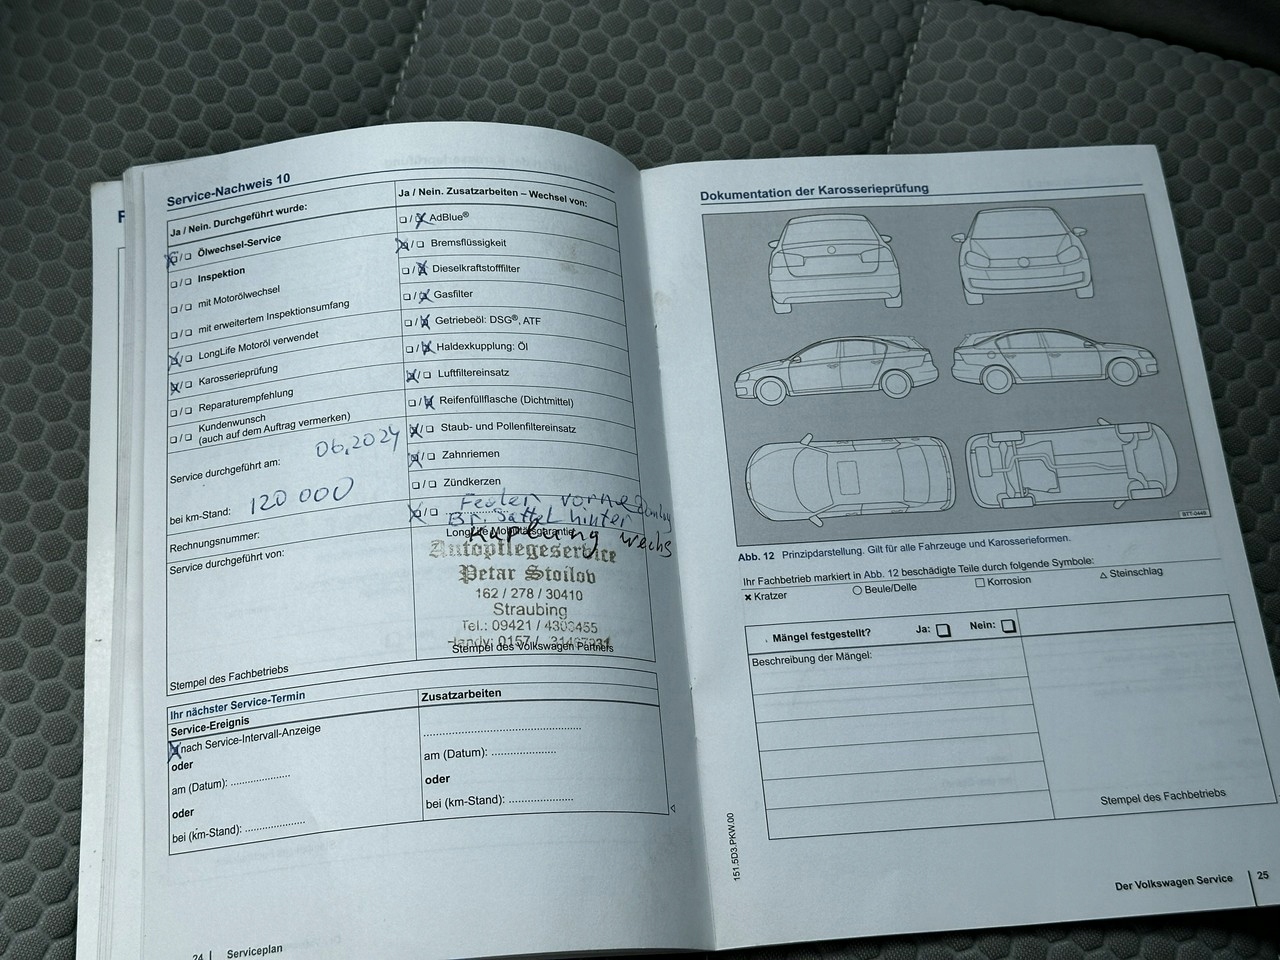 Service-Nachweis 10
Ja / Nein. Durchgeführt wurde:
Ölwechsel-Service
Inspektion
mit Motorölwechsel
mit erweitertem Inspektionsumfang
LongLife Motoröl verwendet
Karosserieprüfung
Reparaturempfehlung
Kundenwunsch
(auch auf dem Auftrag vermerken)
Service durchgeführt am: 06.2024
bei km-Stand: 120 000
Rechnungsnummer:
Service durchgeführt von:
Stempel des Fachbetriebs
Ja / Nein. Zusatzarbeiten – Wechsel von:
AdBlue®
Bremsflüssigkeit
Dieselkraftstofffilter
Gasfilter
Getriebeöl: DSG®, ATF
Haldexkupplung: Öl
Luftfiltereinsatz
Reifenfüllflasche (Dichtmittel)
Staub- und Pollenfiltereinsatz
Zahnriemen
Zündkerzen
Federn vorne
Br. Sattel hinter
LongLife Mobilitätsgarantie
Kuplung wechs
Autopflegeservice
Petar Stoilov
162 / 278 / 30410
Straubing
Tel.: 09421 /
Handy: 0157 /
Stempel des Volkswagen Partners
Ihr nächster Service-Termin
Service-Ereignis
nach Service-Intervall-Anzeige
oder
am (Datum):
oder
bei (km-Stand):
Zusatzarbeiten
am (Datum):
oder
bei (km-Stand):
24 | Serviceplan
Dokumentation der Karosserieprüfung
BTT-0449
Abb. 12 Prinzipdarstellung. Gilt für alle Fahrzeuge und Karosserieformen.
Ihr Fachbetrieb markiert in Abb. 12 beschädigte Teile durch folgende Symbole:
× Kratzer ○ Beule/Delle □ Korrosion △ Steinschlag
Mängel festgestellt? Ja: Nein:
Beschreibung der Mängel:
Stempel des Fachbetriebs
151.5D3.PKW.00
Der Volkswagen Service | 25